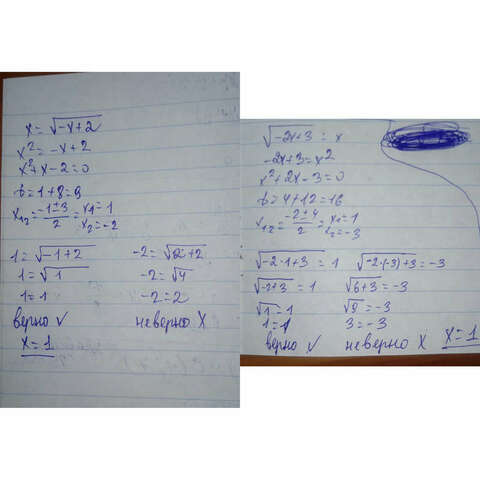 x = √-x+2
x² = -x+2
x²+x-2=0
D=1+8=9
x₁₂ = -1±3/2 = x₁=1
x₂=-2
1=√-1+2
-2=√2+2
1=√1
-2=√4
1=1
-2=2
верно √
неверно X
x=1
√-2x+3 = x
-2x+3=x²
x²+2x-3=0
D=4+12=16
x₁₂ = -2±4/2 = x₁=1
x₂=-3
√-2·1+3 = 1
√-2·(-3)+3 = -3
√-2+3 = 1
√6+3 = -3
√1=1
√9=-3
1=1
3=-3
верно √
неверно X
x=1